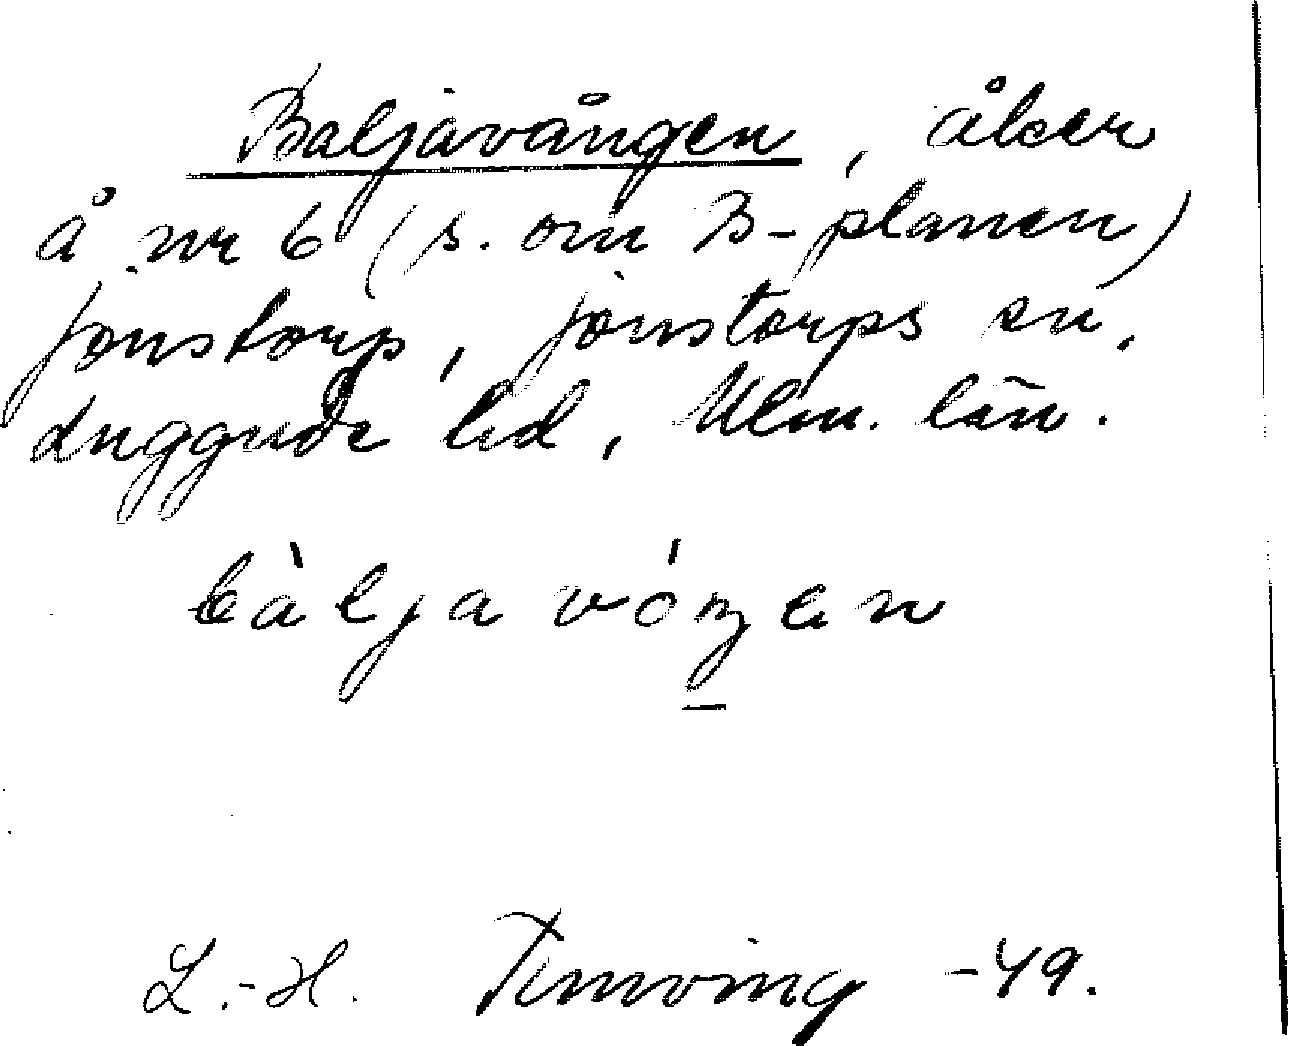 Baljavången, åker
å nr 6 (s. om B-planen)
Jonstorp, Jonstorps sn,
Luggude hd, Mlm. län.
bàljavóŋen
L.-H. -49.